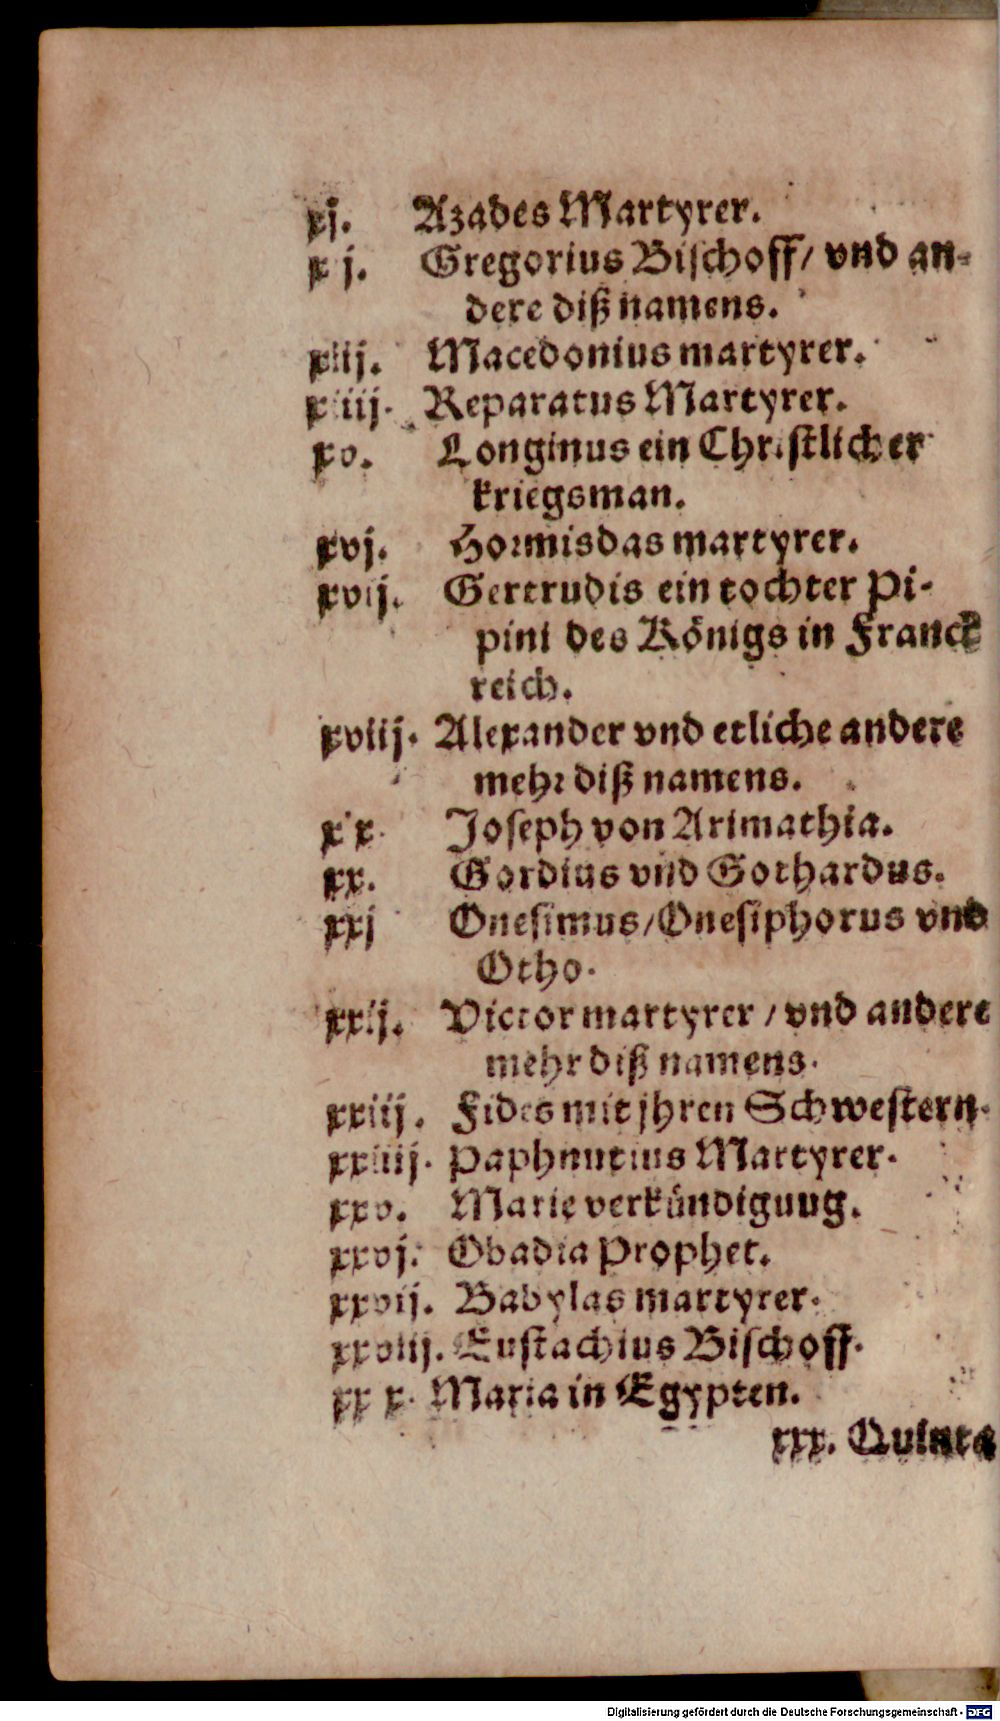 xj. Azades Martyrer.
x j. Gregorius Bischoff/ vnd an-
dere diß namens.
xiij. Macedonius martyrer.
xiiij. Reparatus Martyrer.
xv. Longinus ein Christlicher
kriegsman.
xvj. Hormisdas martyrer.
xvij. Gertrudis ein tochter Pi-
pini des Königs in Franck
reich.
xviij. Alexander vnd etliche andere
mehr diß namens.
x x. Joseph von Arimathia.
xx. Gordius vnd Gothardus.
xxj Onesimus/Onesiphorus vnd
Otho.
xxij. Victor martyrer / vnd andere
mehr diß namens.
xxiij. Fides mit jhren Schwestern.
xxiiij. Paphnutius Martyrer.
xxv. Marie verkündiguug.
xxvj. Obadia Prophet.
xxvij. Babylas martyrer.
xxviij. Eustachius Bischoff.
xx x. Maria in Egypten.
xxx. Quinta
Digitalisierung gefördert durch die Deutsche Forschungsgemeinschaft - DFG